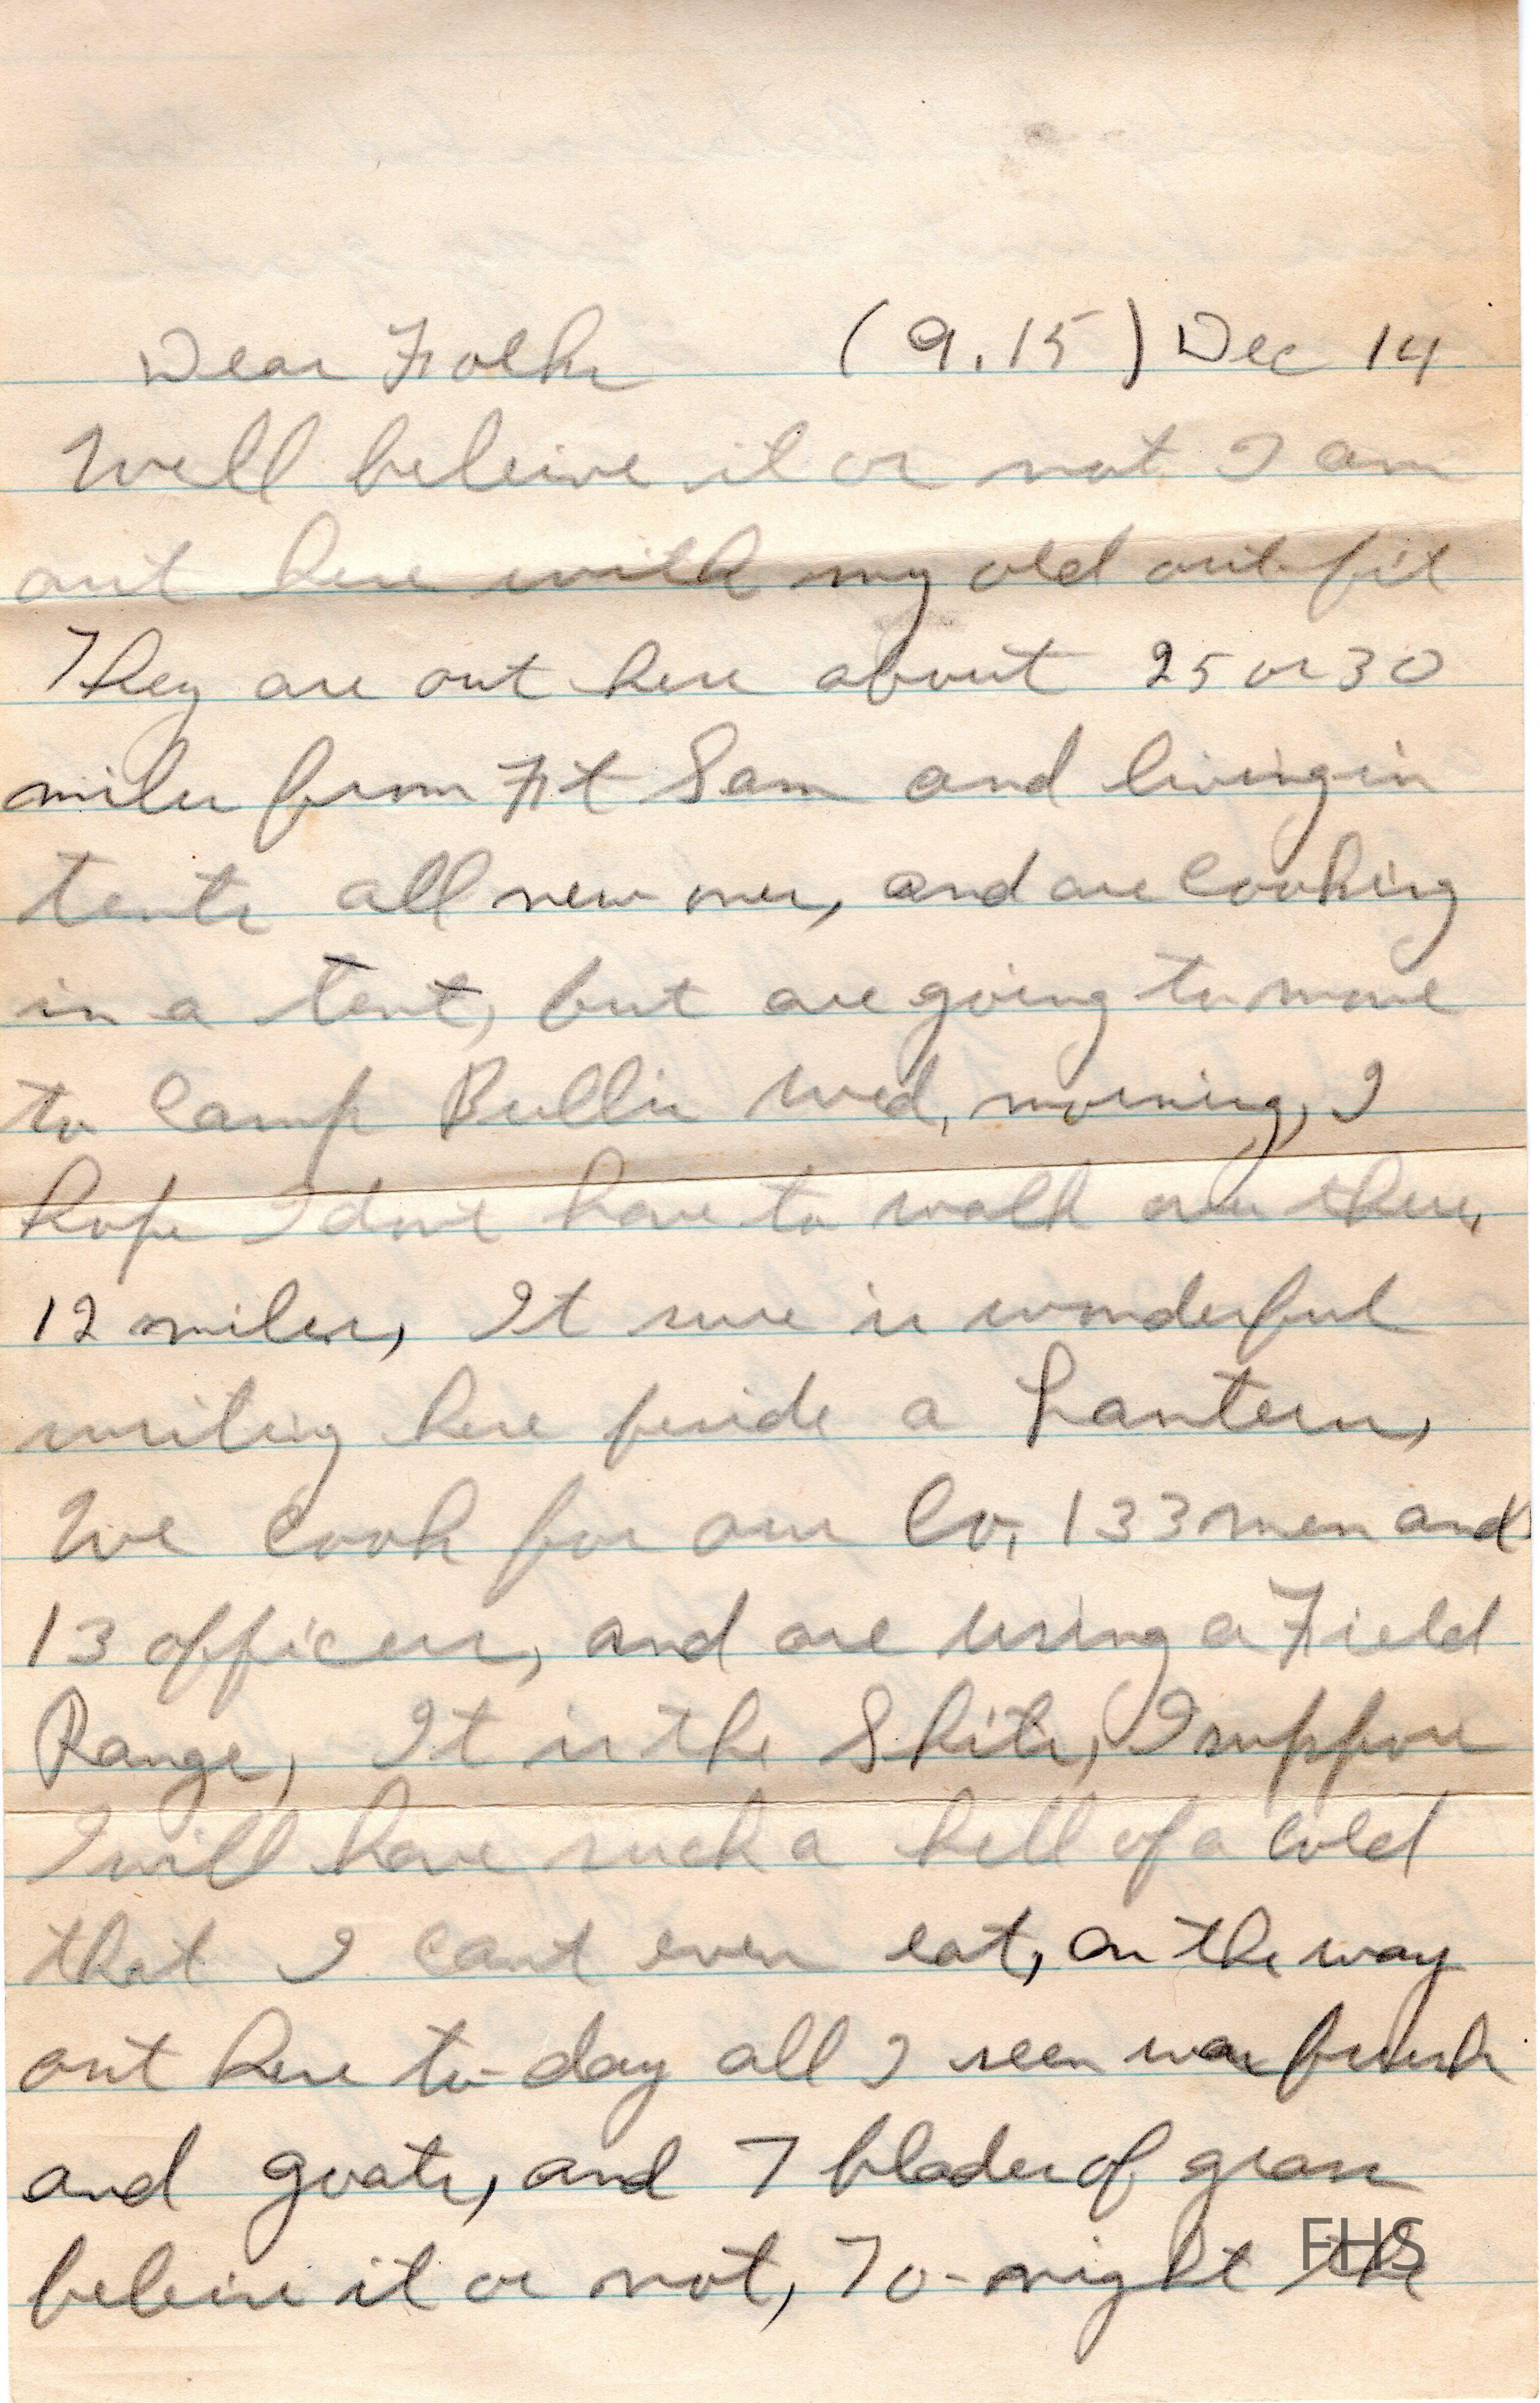 Dear Folks (9.15) Dec 14
Well beleive it or not I am
out here with my old out-fit
They are out here about 25 or 30
miles from Ft Sam and living in
tents all new ones, and are cooking
in a tent, but are going to move
to Camp Bullis Wed, morning, I
hope I dont have to walk over there,
12 miles, It sure is wonderful
writing here beside a Lantern,
We cook for our Co, 133 men and
13 officers, and are using a Field
Range, It is the Shits, I suppose
I will have such a hell of a cold
that I cant even eat, on the way
out here to-day all I seen was brush
and goats, and 7 blades of grass
beleive it or not, To-night the
FHS